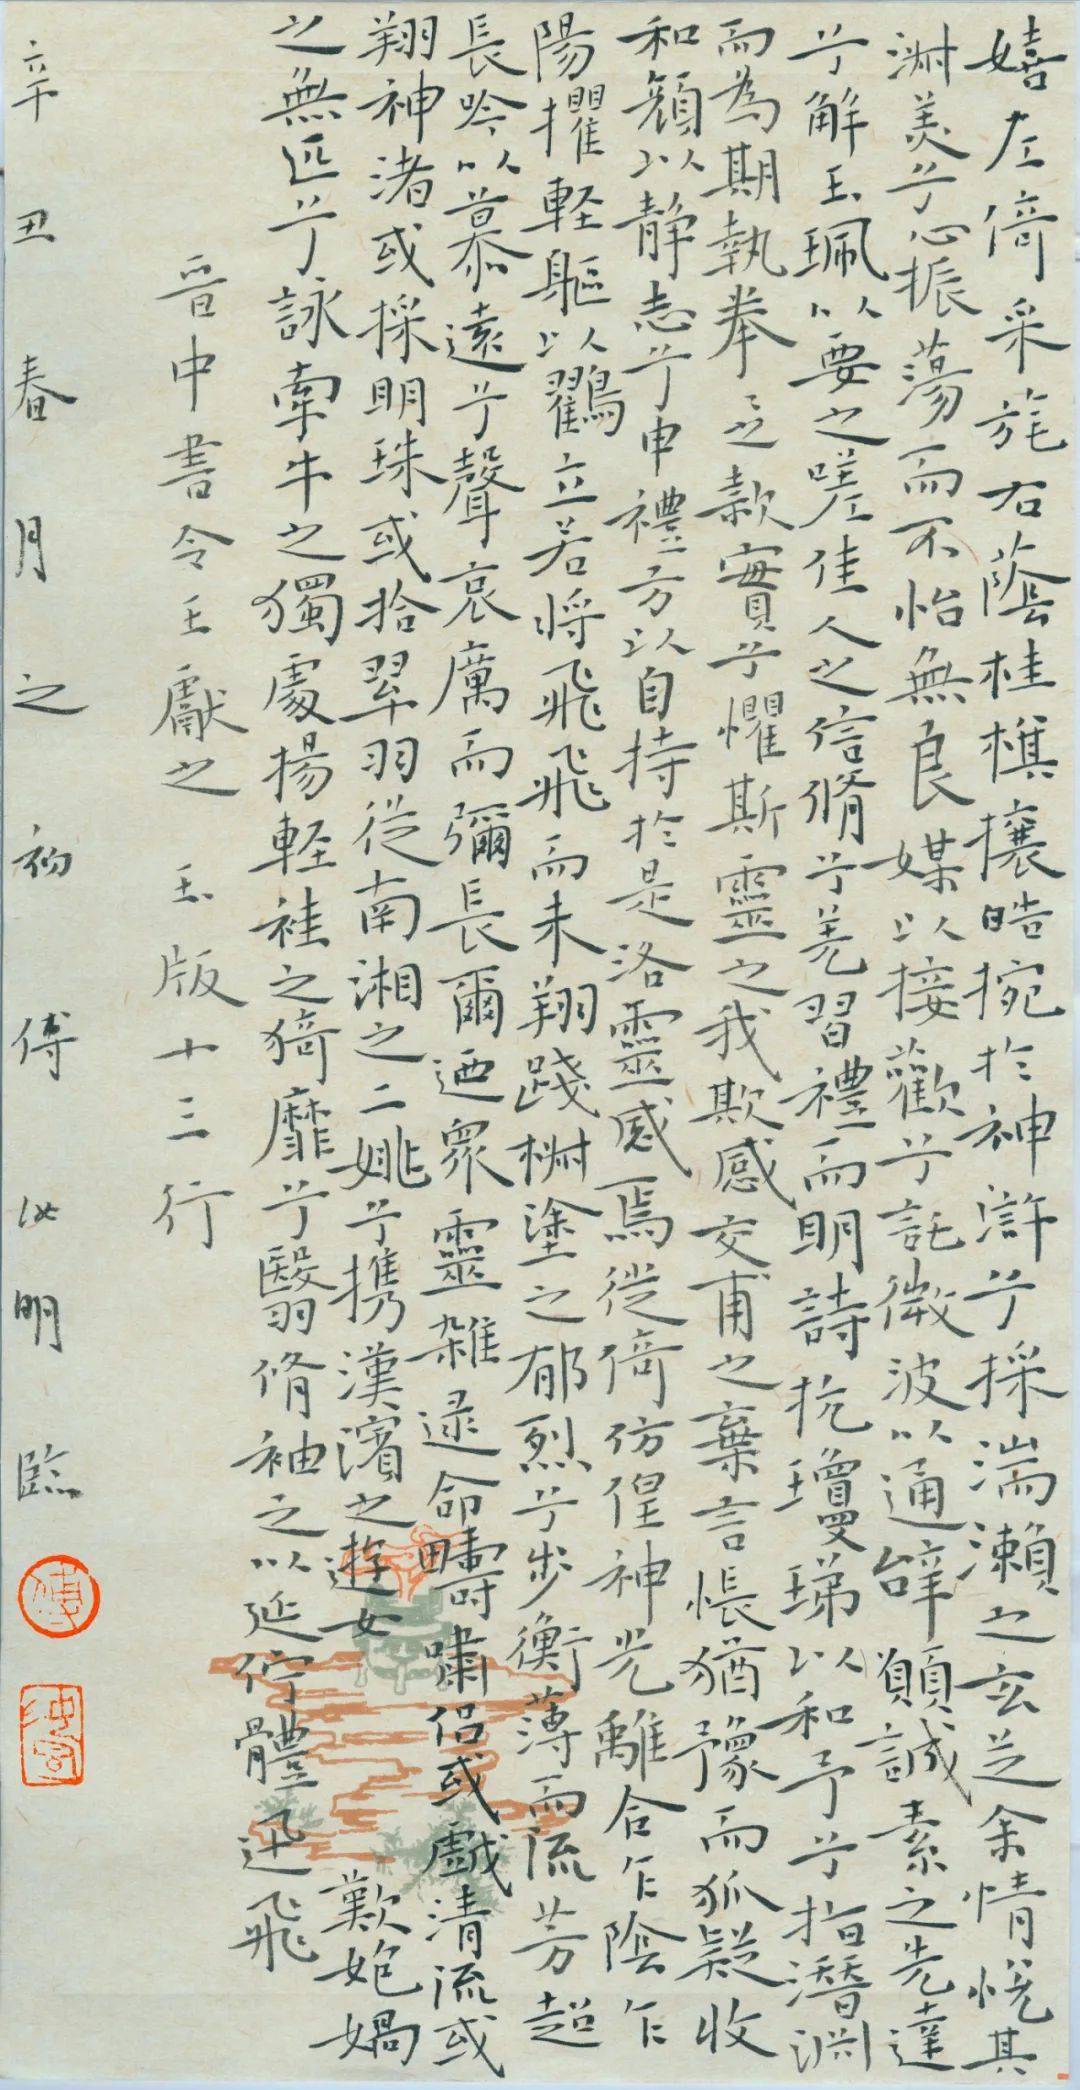 嬉左倚采旄右蔭桂棋攘皓捥於神滸兮採湍瀨之玄芝余情悅其
淑美兮心振蕩而不怡無良媒以接歡兮託微波以通辞願誠素之先達
兮解玉珮以要之嗟佳人之信脩兮羌習禮而明詩抗瓊珶以和予兮指潛渊
而為期執拳之款實兮懼斯靈之我欺感交甫之棄言悵猶豫而狐疑收
和顏以静志兮申禮方以自持於是洛靈感焉徙倚仿偟神光離合乍陰乍
陽擢軽軀以鸖立若将飛飛而未翔踐椒塗之郁烈兮步衡薄而流芳超
長吟以慕遠兮聲哀厲而彌長爾迺衆靈雜逯命疇嘯侣或戲清流或
翔神渚或採明珠或拾翠羽從南湘之二姚兮携漢濱之遊女 歎匏媧
之無匹兮詠牽牛之獨處揚軽袿之猗靡兮翳脩袖之以延佇體迅飛
晋中書令王獻之 玉版十三行
辛丑春月之初傅 明臨
傅